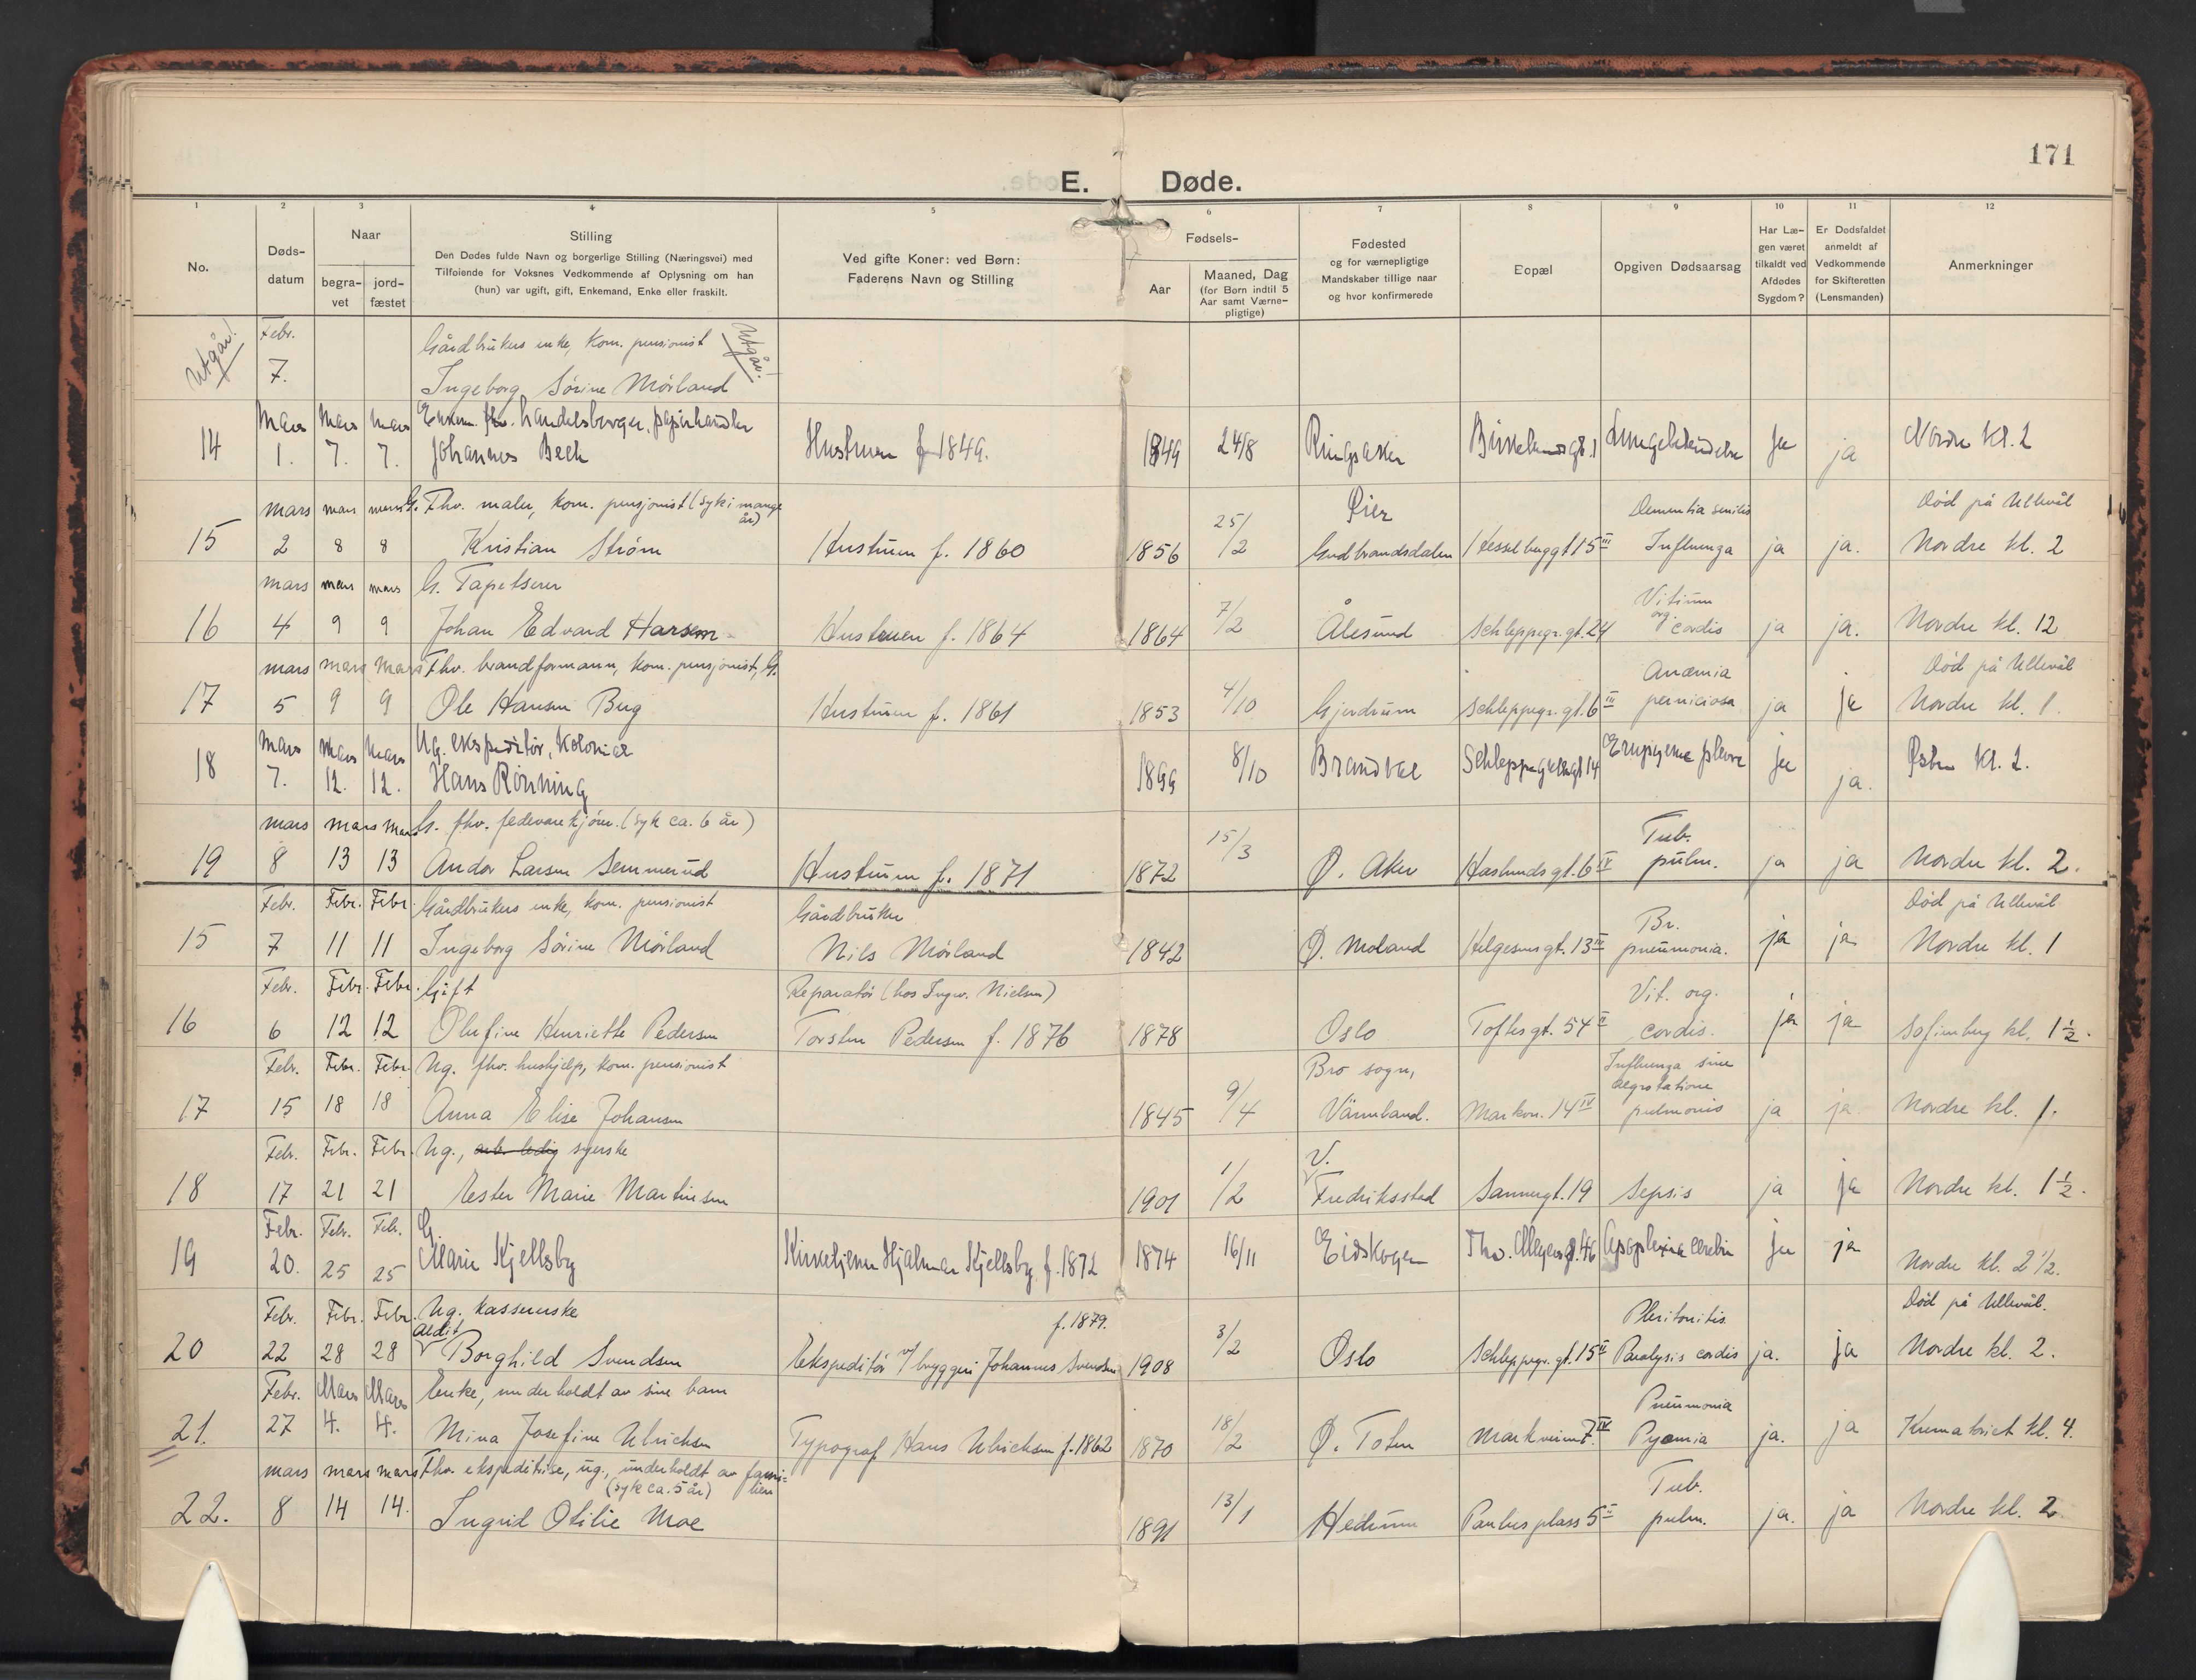 171
E. Døde.
1 2 3 4 5 6 7 8 9 10 11 12
No.
Døds-
datum
Naar
begra-
vet
jord-
fæstet
Stilling
Den Dødes fulde Navn og borgerlige Stilling (Næringsvei) med
Tilføiende for Voksnes Vedkommende af Oplysning om han
(hun) var ugift, gift, Enkemand, Enke eller fraskilt.
Ved gifte Koner: ved Børn:
Faderens Navn og Stilling
Fødsels-
Aar
Maaned, Dag
(for Børn indtil 5
Aar samt Værne-
pligtige)
Fødested
og for værnepligtige
Mandskaber tillige naar
og hvor konfirmerede
Bopæl
Opgiven Dødsaarsag
Har Læ-
gen været
tilkaldt ved
Afdødes
Sygdom?
Er Dødsfaldet
anmeldt af
Vedkommende
for Skifteretten
(Lensmanden)
Anmerkninger
Utgår! Febr. Gårdbrukers enke, kom. pensionist Utgår!
7. Ingeborg Sørine Mørland
Mars Mars Mars Enkem. fhv. handelsborger, papirhandler
14 1. 7. 7. Johannes Bech Hustruen f. 1849. 1849 24/8 Ringsaker Birkelundsgt. 1 Lungebetendelse ja ja Nordre kl. 2
mars mars mars G. Fhv. maler, kom. pensjonist (syk i mange år) Øier Dementia senilis Død på Ullevål
15 2 8 8 Kristian Strøm Hustruen f. 1860 1856 25/2 Gudbrandsdalen Hesselbuggt 15 III Influenza ja ja. Nordre kl. 2
mars mars mars G. Tapetserer Vitium org.
16 4 9 9 Johan Edvard Hansen Hustruen f. 1864 1864 7/2 Ålesund Schleppegr. gt. 24 cordis ja ja. Nordre kl. 12
mars mars mars Fhv. brandformann, kom. pensjonist, G. Anæmia Død på Ullevål
17 5 9 9 Ole Hansen Bug Hustruen f. 1861 1853 4/10 Gjerdrum Schleppegr. gt. 6 III perniciosa ja ja Nordre kl. 1.
Mars Mars Mars Ug. ekspeditør, kolonial
18 7. 12. 12. Hans Rønning 1899 8/10 Brandval Schleppegrellsgt 14 Empyema pleura ja ja. Østre kl. 2.
mars mars mars G. fhv. fedevarekjøm. (syk ca. 6 år) Tub.
19 8 13 13 Andor Larsen Semmerud Hustruen f. 1871 1872 15/3 Ø. Aker Haslundsgt. 6 IV pulm. ja ja Nordre kl. 2.
Febr. Febr. Febr. Gårdbrukers enke, kom. pensionist Gårdbruker Br. Død på Ullevål
15 7 11 11 Ingeborg Sørine Mørland Nils Mørland 1842 Ø. Moland Helgesensgt. 13 III pneumonia. ja ja Nordre kl. 1
Febr. Febr. Febr. Gift Reparatør (hos Ingw. Nielsen) Vit. org.
16 6 12 12 Olufine Henriette Pedersen Torsten Pedersen f. 1876 1878 Oslo Toftesgt. 54 II cordis. ja ja Sofienberg kl. 1 1/2.
Febr. Febr. Febr. Ug. fhv. hushjelp, kom. pensionist Bro sogn, Influenza sine aegrotatione
17 15 18 18 Anna Elise Johansen 1845 9/4 Värmland. Markvn. 14 IV pulmonis ja ja Nordre kl. 1.
Febr. Febr. Febr. Ug., arb. ledig syerske V.
18 17 21 21 Ester Marie Martinsen 1901 1/2 Fredriksstad Sannergt. 19 Sepsis ja ja Nordre kl. 1 1/2.
Febr. Febr. Febr. G.
19 20. 25 25 Marie Kjellsby Kirketjener Hjalmar Kjellsby f. 1872 1874 16/11 Eidskogen Thv. Meyersgt. 46 Apoplexia cerebri ja ja Nordre kl. 2 1/2.
Febr. Febr. Febr. Ug. kassererske f. 1879. Peritonitis Død på Ullevål.
20 22 28 28 Aldit Borghild Svendsen Ekspeditør v/ bryggeri Johannes Svendsen 1908 3/2 Oslo Schleppegr. gt. 15 II Paralysis cordis ja. ja Nordre kl. 2.
Febr. Mars Mars Enke, underholdt av sine barn Pneumonia
21. 27 4. 4. Mina Josefine Ulrichsen Typograf Hans Ulrichsen f. 1862 1870 18/2 Ø. Toten Markveien 7 IV Pyæmia ja. ja Krematoriet kl. 4.
mars mars mars Fhv. ekspeditrise, ug., underholdt av fami-
(syk ca. 5 år) lien Tub.
22. 8 14 14. Ingrid Otilie Moe 1891 13/1 Hedrum Paulus plass 5 II pulm. ja. ja Nordre kl. 2